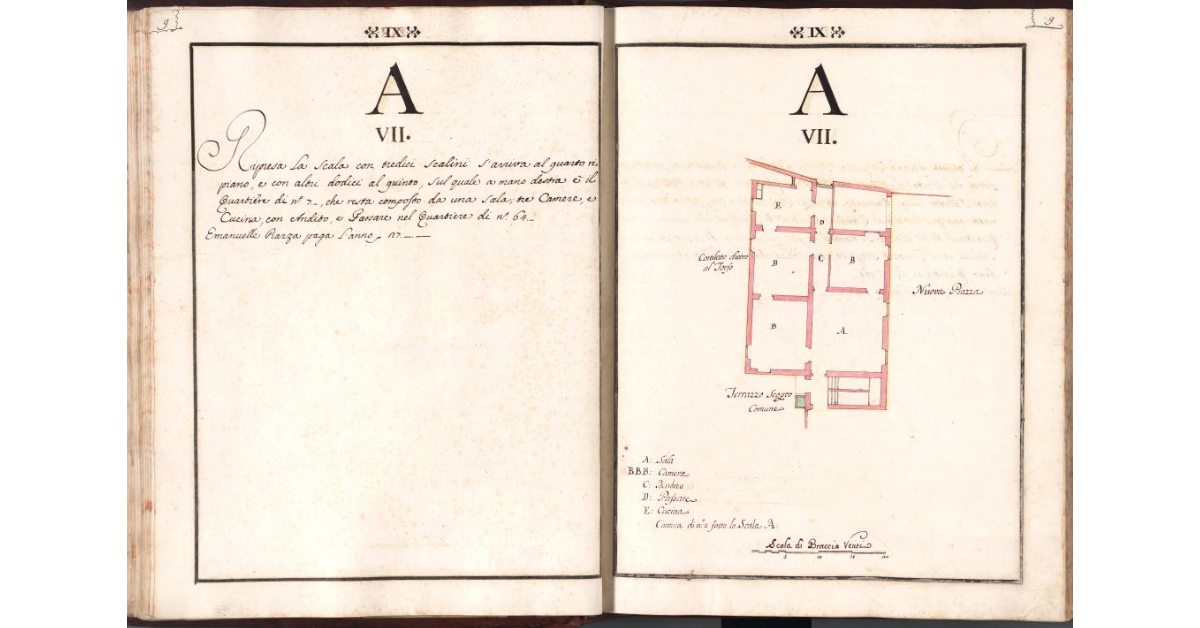 9
IX
A
VII.
Ripresa La Scala con tredici Scalini s'arriva al quarto ri-
piano, e con altri dodici al quinto, sul quale a mano destra è il
Quartiere di n.º 7_, che resta composto da una Sala, tre Camere, e
Cucina, con Andito, e Passare nel Quartiere di n.º 64._
Emanuelle Piazza paga l'anno
9
IX
A
VII.
E
D
Cortiletto dietro
al Torso
B
C
B
Nuova Piazza
B
A
Terrazzo
Comune
A: Sala
B.B.B: Camere
C: Andito
D: Passare
E: Cucina
Cantina di n.º 2 sotto la Scala A.
Scala di Braccia